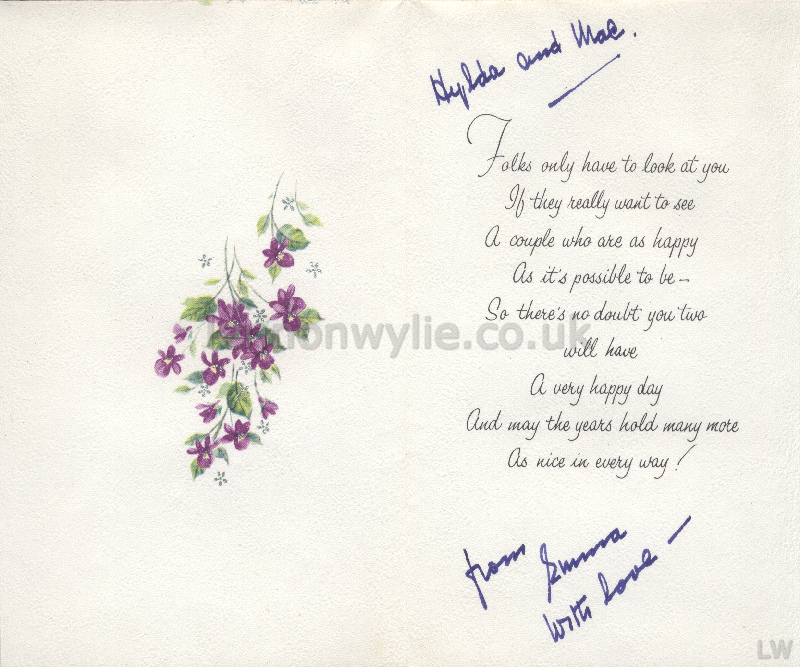 Hylda and Mac.
Folks only have to look at you
If they really want to see
A couple who are as happy
As it's possible to be—
So there's no doubt you two
will have
A very happy day
And may the years hold many more
As nice in every way!
from Emma
with love —
LW